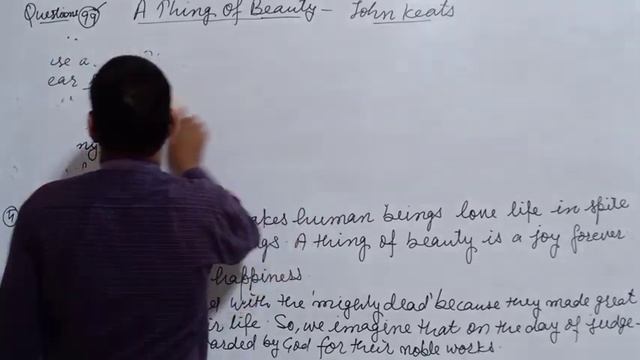 Questions 99 A Thing Of Beauty - John Keats
use a
ear
ng
4 akes human beings love life in spite
ngs. A thing of beauty is a joy forever
happiness.
with the 'mighty dead' because they made great
ir life. So, we imagine that on the day of judge-
arded by God for their noble works.